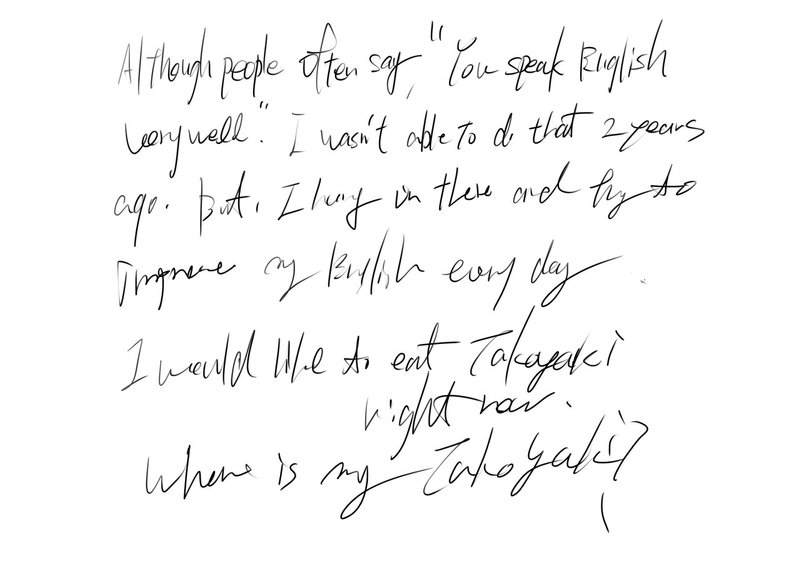 Although people often say, "You speak English
very well". I wasn't able to do that 2 years
ago. But, I hung in there and try to
improve my English every day.
I would like to eat Takoyaki
right now.
Where is my Takoyaki?